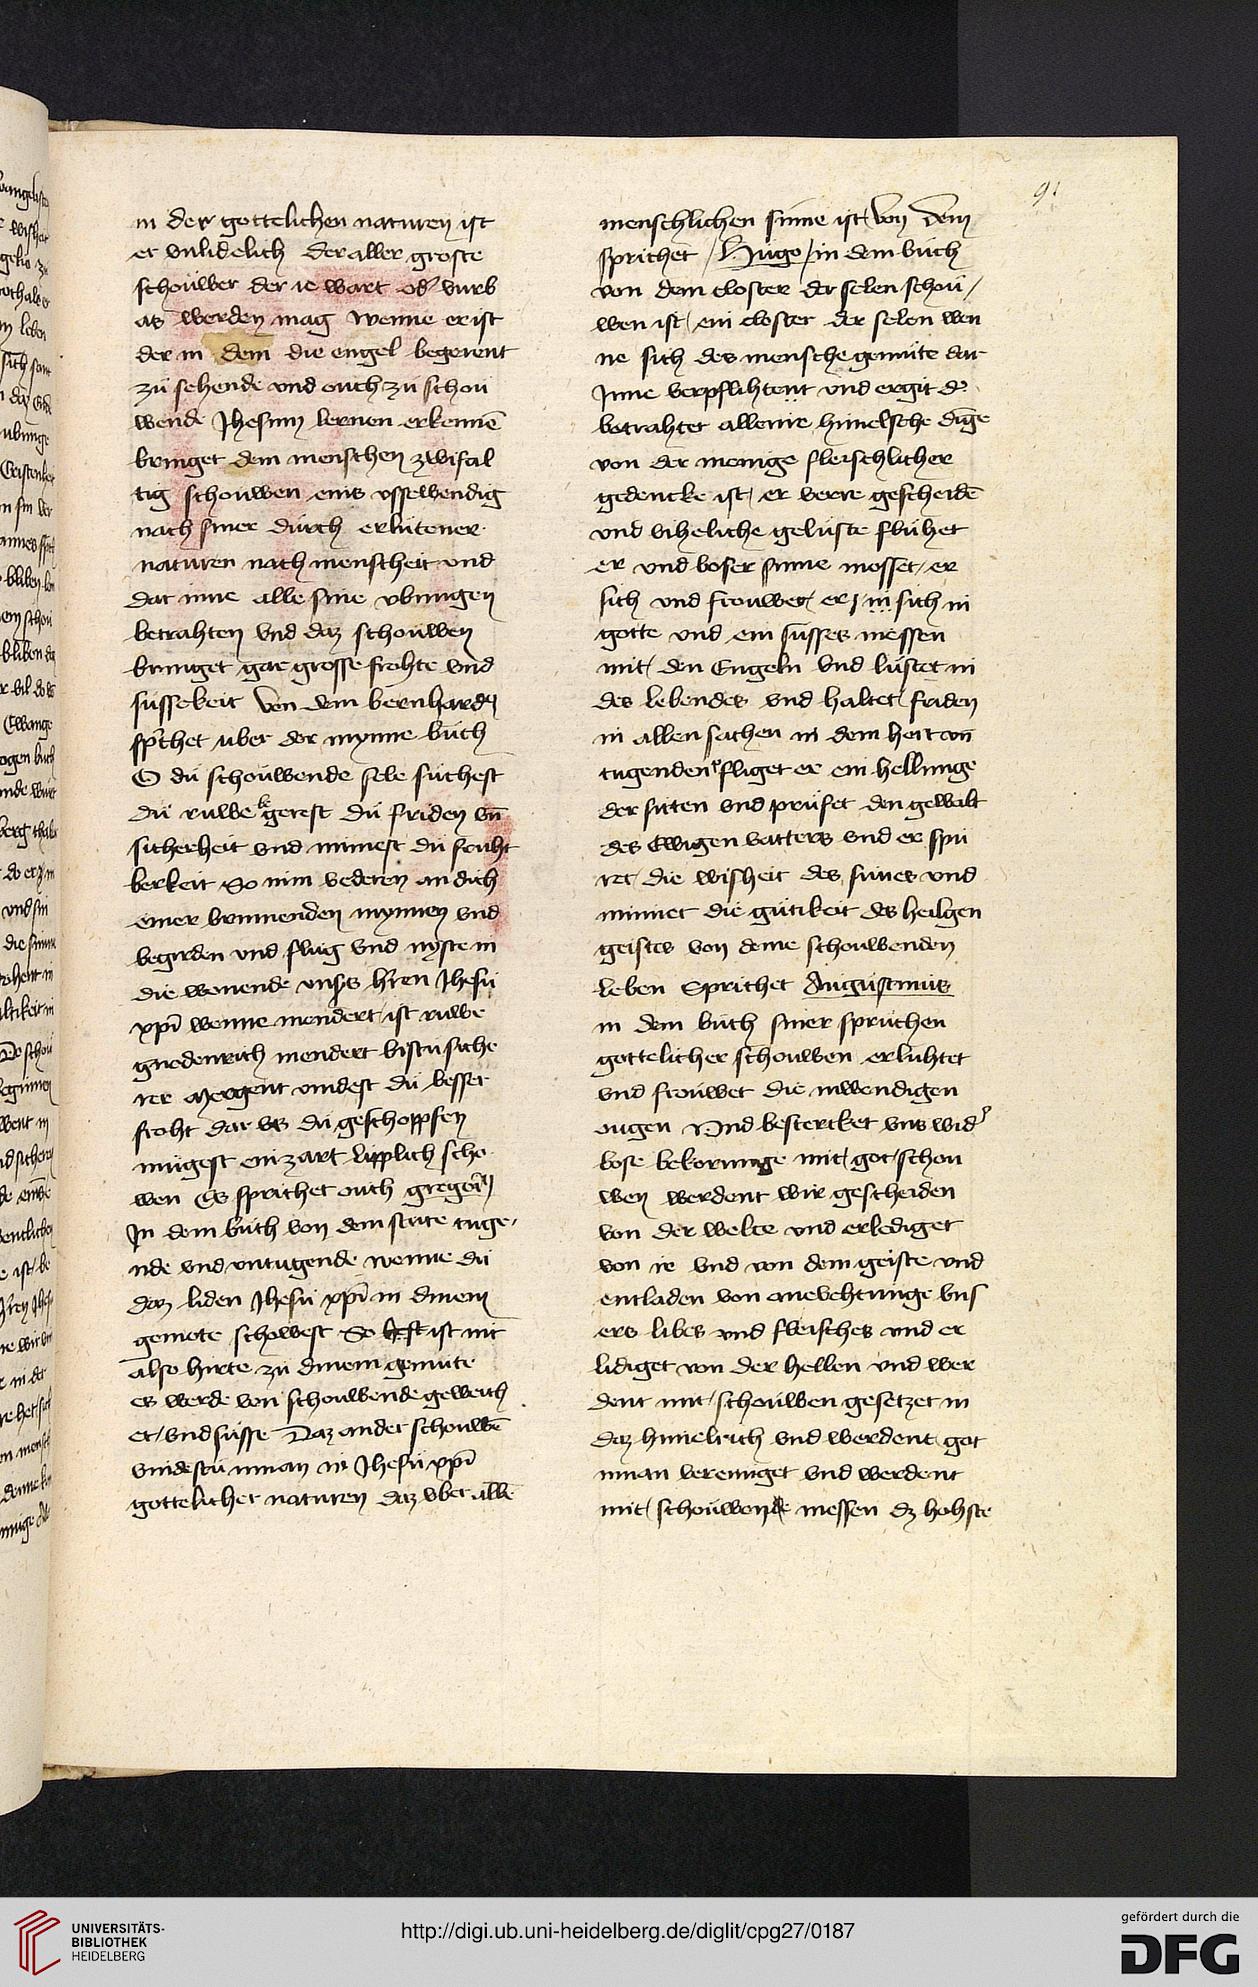 91
in der gottelichen naturen ist
er vnlidelich der aller groste
schoúwer der ie wart od' vurb
as werden mag wenne er ist
der in dem die engel begerent
zú sehende vnd ouch zu schou
wende Jhesum lernen erkennē
bringet dem menschen zwifal
tig schouwen eins vssewendig
nach siner dúrch erlútener
naturen nach menscheit vnd
dar inne alle sine vbungen
betrahten vnd daz schouwen
bringet gar grosse frohte vnd
sússekeit von dem bernhard9
sp'chet uber der mynne búch
O dú schoúwende sele súchest
dú ruwe begerest dú friden vn̄
sicherheit vnd minnest dú fruht
berkeit So nim vederen an dich
einer brinnenden mynnen vnd
begirden vnd flúg vnd nyste in
die wonende vnß hr̄en Jhesú
xp̄i wenne niendert ist ruwe
gnedenrich niendert bistu siche
rer niergent vindest dú besser
froht dar vs dú geschoppfen
múgest ein zart lipplich scho
wen Es sprichet ouch gregori9
Jn dem búch von dem strite tuge
nde vnd vntugende wenne dú
daz liden Jhesú xp̄i in dinem
gemote schowest So ist nit
also hirte zú dinem gemúte
es werde von schouwende geweich
et vnd sússe Daz ander schouwē
vindestu man in Jhesú xp̄i
gottelicher naturen daz vber allē
menschlichen sinne ist von dem
sprichet Húgo in dem búch
von dem closter der selen schoú
wen ist ein closter der selen wen
ne sich des mensche gemúte dar
Jnne verpflihtent vnd ergit d'
betrahtet alleine himelsche dinge
von der menige fleischlicher
gedencke ist er verre gescheidē
vnd viheliche gelúste flúhet
er vnd boser sinne messet er
sich vnd frouwet er in sich in
gotte vnd ein sússes messen
mit den Engeln vnd lústet in
des lebendes vnd haltet friden
in allen sachen in dem heit von
tugenden pfliget er ein hellunge
der sitten vnd prúfet den gewalt
des Ewigen vatters vnd er spú
ret die wisheit des súnes vnd
minnet die gútikeit des heilgen
geistes von deme schouwenden
leben Sprichet Augústinús
in dem búch siner sprúchen
gottelicher schouwen erlúhtet
vnd froúwet die inwendigen
ougen Vnd bestercket vns wid'
bose bekorunge mit got schou
wen werdent wir gescheiden
von der welte vnd erlediget
von ir vnd von dem geiste vnd
entladen von anevehtunge vns
ers libes vnd fleisches vnd er
lidiget von der hellen vnd wer
dent mit schoúwen gesetzet in
daz himelrich vnd werdent got
man vereiniget vnd werdent
mit schoúwende niessen dz hohste
UNIVERSITÄTS-
BIBLIOTHEK
HEIDELBERG
http://digi.ub.uni-heidelberg.de/diglit/cpg27/0187
gefördert durch die
DFG